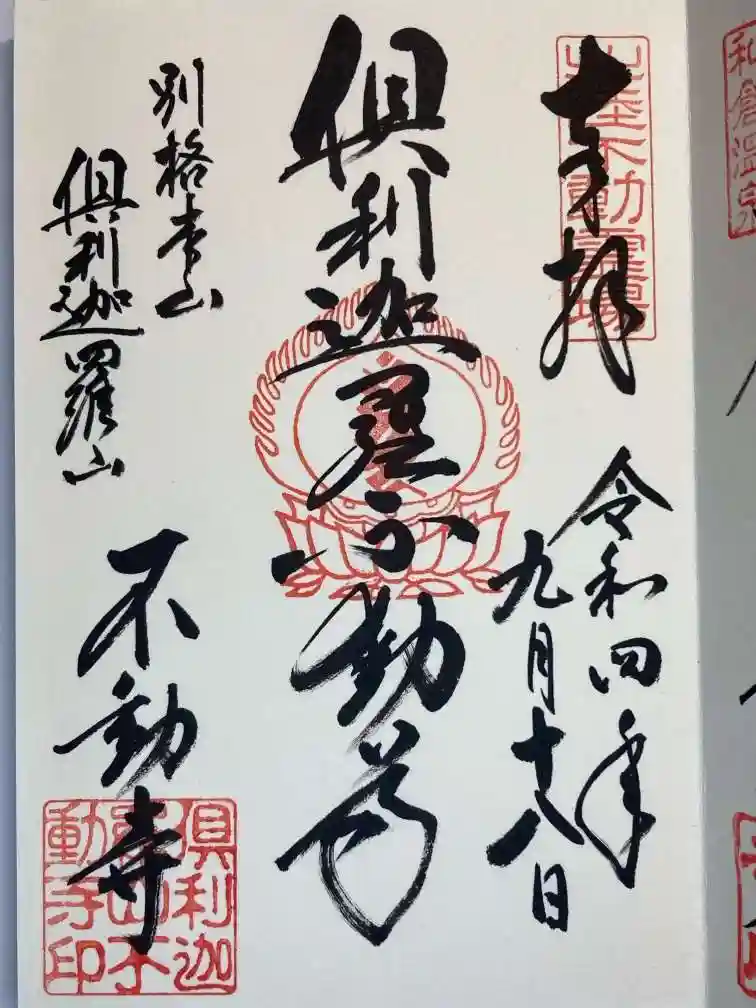 和倉温泉
奉拝
北陸不動霊場
令和四年
九月十八日
倶利迦羅不動尊
別格本山
倶利迦羅山
不動寺
倶利迦
羅山不
動寺印